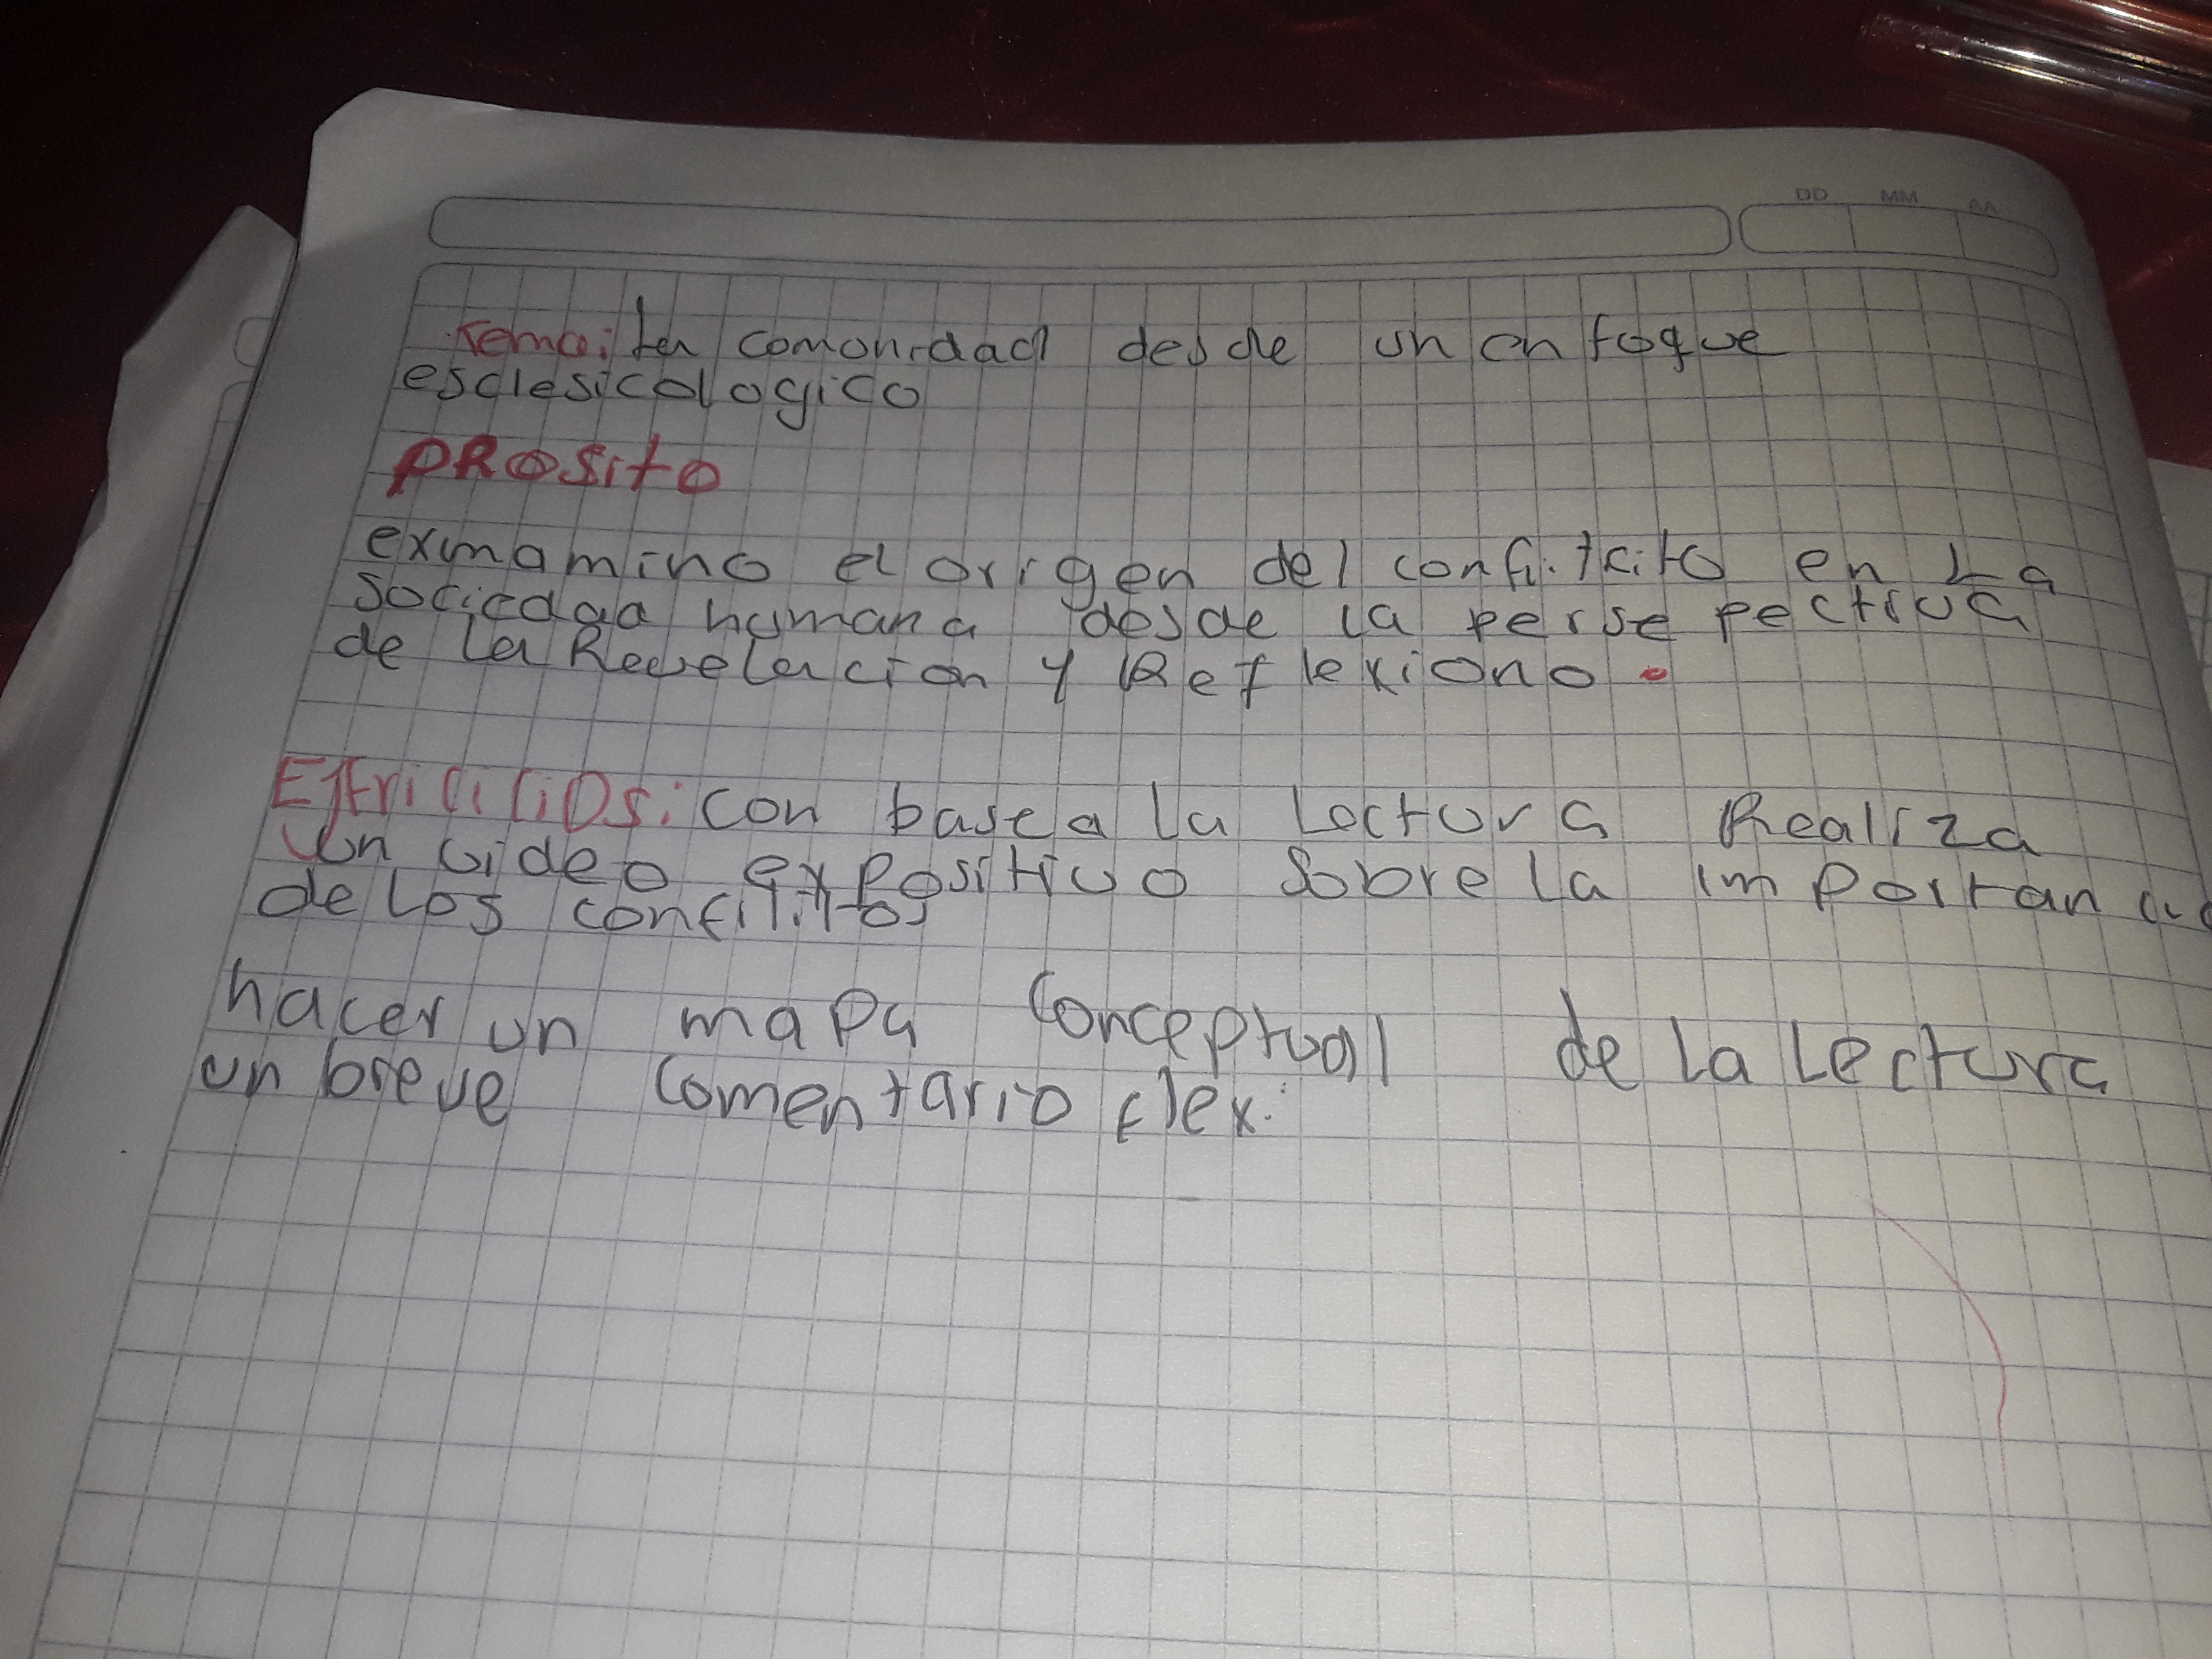 DD MM AA
Tema: La comunidad desde un enfoque
esclesicologico
PROSito
exmamino el origen del en La
sociedad humana desde la persepectiva
de la Revelacion y Reflexiono.
con base a la Lectura Realiza
un video expositivo sobre la importancia
de los
hacer un mapa conceptual de la Lectura
un breve comentario flex.